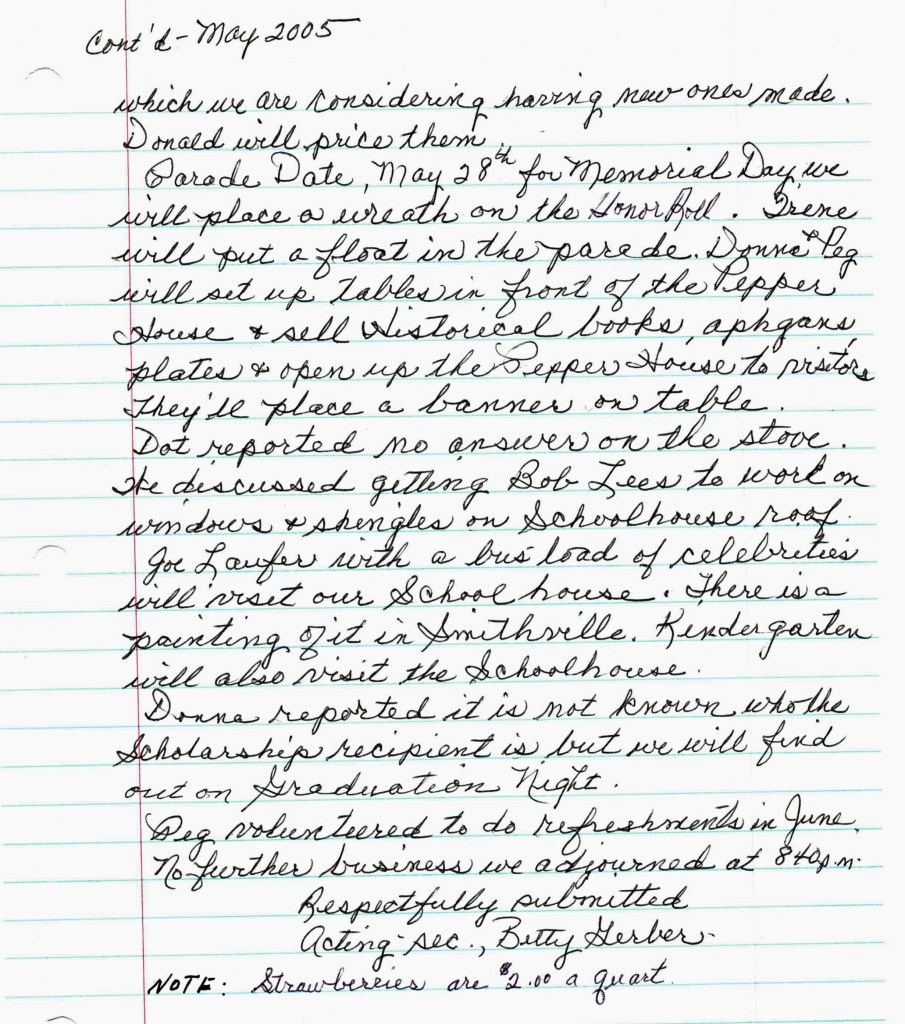 Cont'd - May 2005
which we are considering having new ones made.
Donald will price them.
Parade Date, May 28th for Memorial Day, we
will place a wreath on the Honor Roll. Irene
will put a float in the parade. Donna & Peg
will set up tables in front of the Pepper
House & sell Historical books, aphgans,
plates & open up the Pepper House to visitors
They'll place a banner on table.
Dot reported no answer on the stove.
We discussed getting Bob Lees to work on
windows & shingles on Schoolhouse roof.
Joe Laufer with a bus load of celebrities
will visit our School house. There is a
painting of it in Smithville. Kindergarten
will also visit the Schoolhouse.
Donna reported it is not known who the
Scholarship recipient is but we will find
out on Graduation Night.
Peg volunteered to do refreshments in June.
No further business we adjourned at 840p.m.
Respectfully submitted
Acting-sec., Betty Gerber-
NOTE: Strawberries are $2.00 a quart.